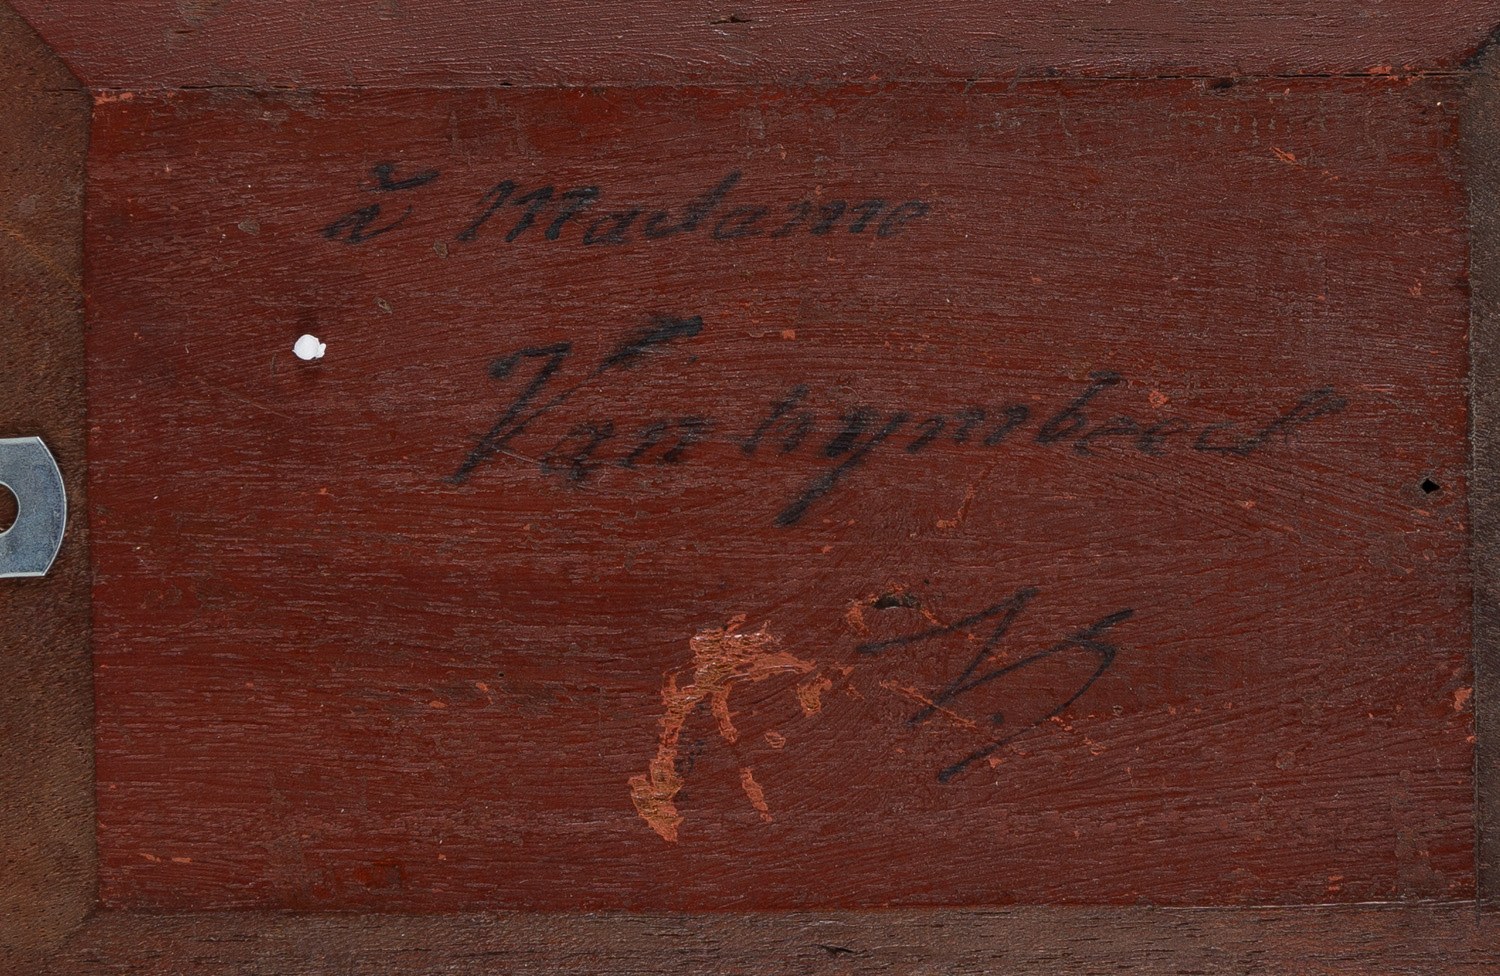 à Madame
Van hymbeeck